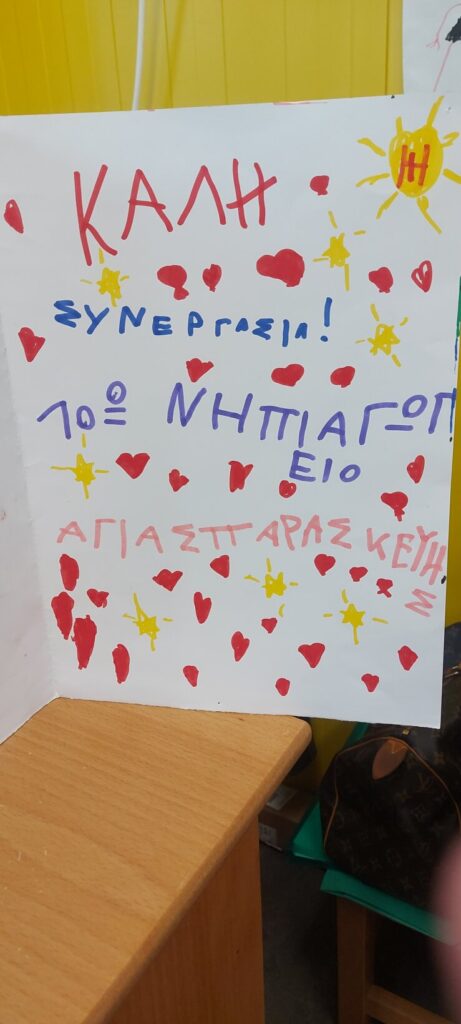 ΚΑΛΗ
ΣΥΝΕΡΓΑΣΙΑ!
10ο ΝΗΠΙΑΓΩΓ
ΕΙΟ
ΑΓΙΑΣ ΠΑΡΑΣΚΕΥΗ
Σ